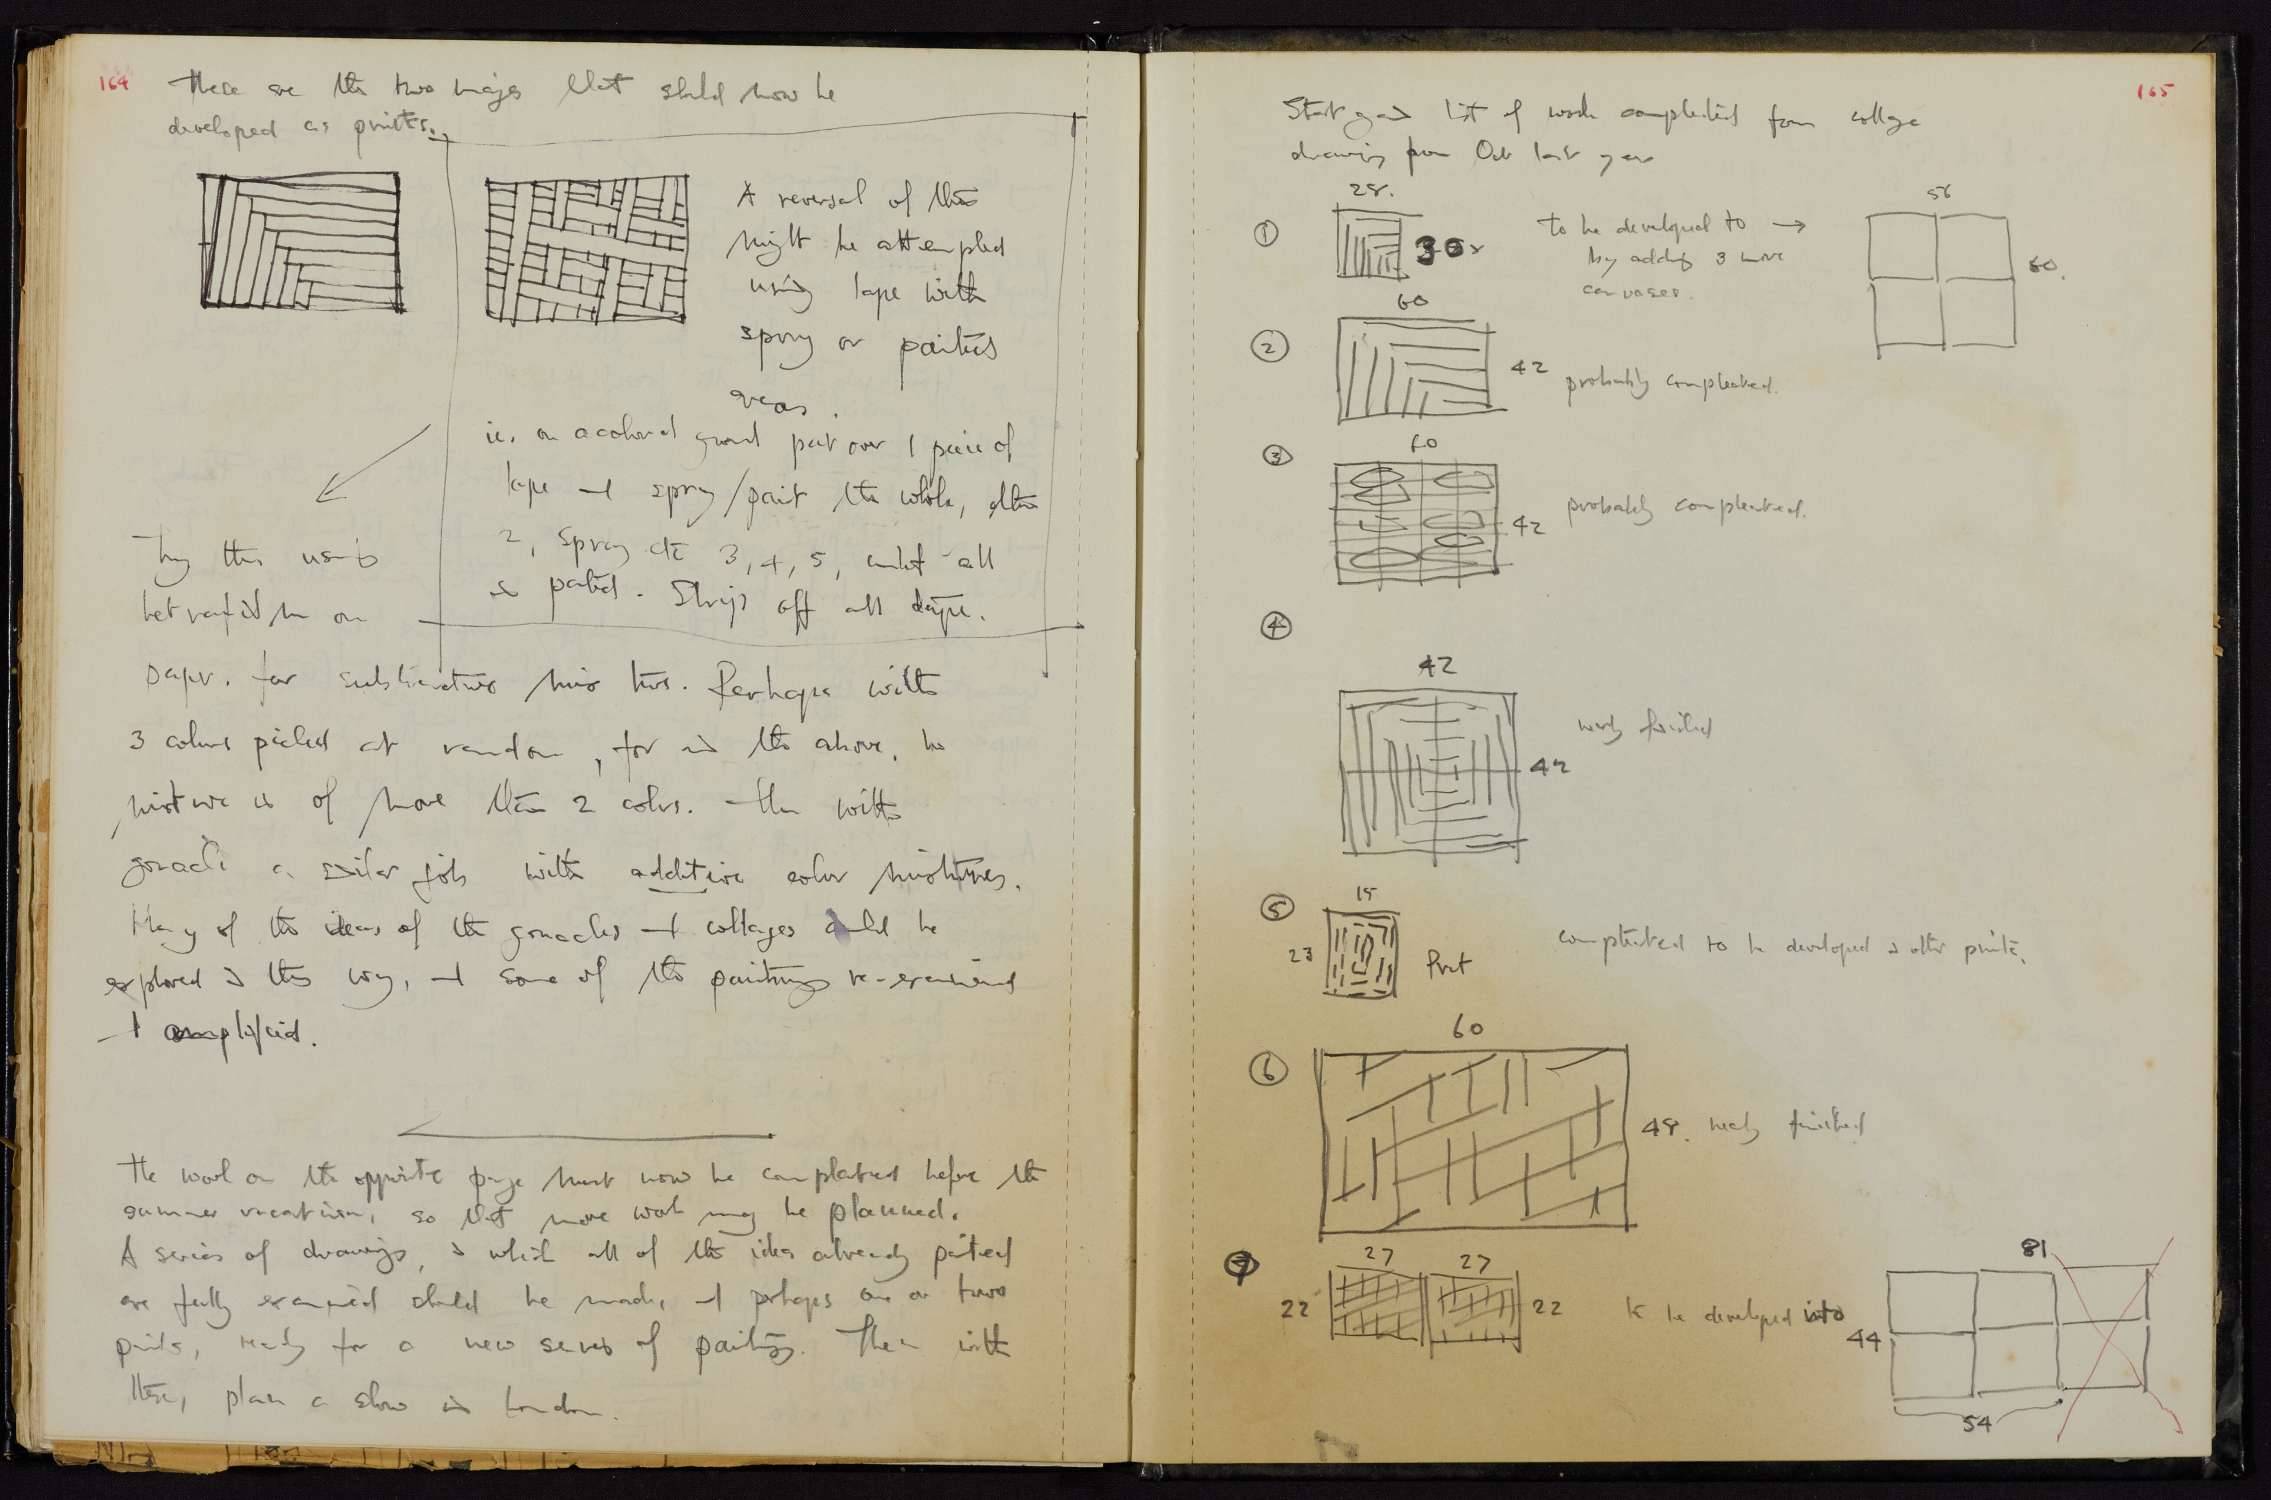 164
These are the two images that should now be
developed as prints.
A reversal of this
might be attempted
using tape with
spray or painted
areas.
ie. on a colored ground put over 1 piece of
tape and spray/paint the whole, then
2, spray etc 3, 4, 5, until all
is painted. Strips off all tape.
Try this using
on
paper. for subtractive mixtures. Perhaps with
3 colours picked at random, for in the above, the
mixture is of more than 2 colours. Then with
gouache a similar job with additive color mixtures.
Many of the ideas of the gouaches and collages could be
explored in this way, and some of the paintings re-examined
and amplified.
The work on the opposite page must now be compleated before the
summer vacation, so that more work may be planned.
A series of drawings, in which all of the ideas already painted
are fully examined should be made, and perhaps one or two
prints, ready for a new series of paintings. Then with
these, plan a show in London.
165
list of work compleated from collage
drawing from Oct last year
1
28.
30
to be developed to →
by adding 3 more
canvases.
56
60.
2
60
42
probably compleated.
3
60
42
probably compleated.
4
42
42
nearly finished
5
15
23
Print
compleated to be developed in other prints.
6
60
48.
nearly finished
7
27
27
22
22
to be developed into
81
44
54